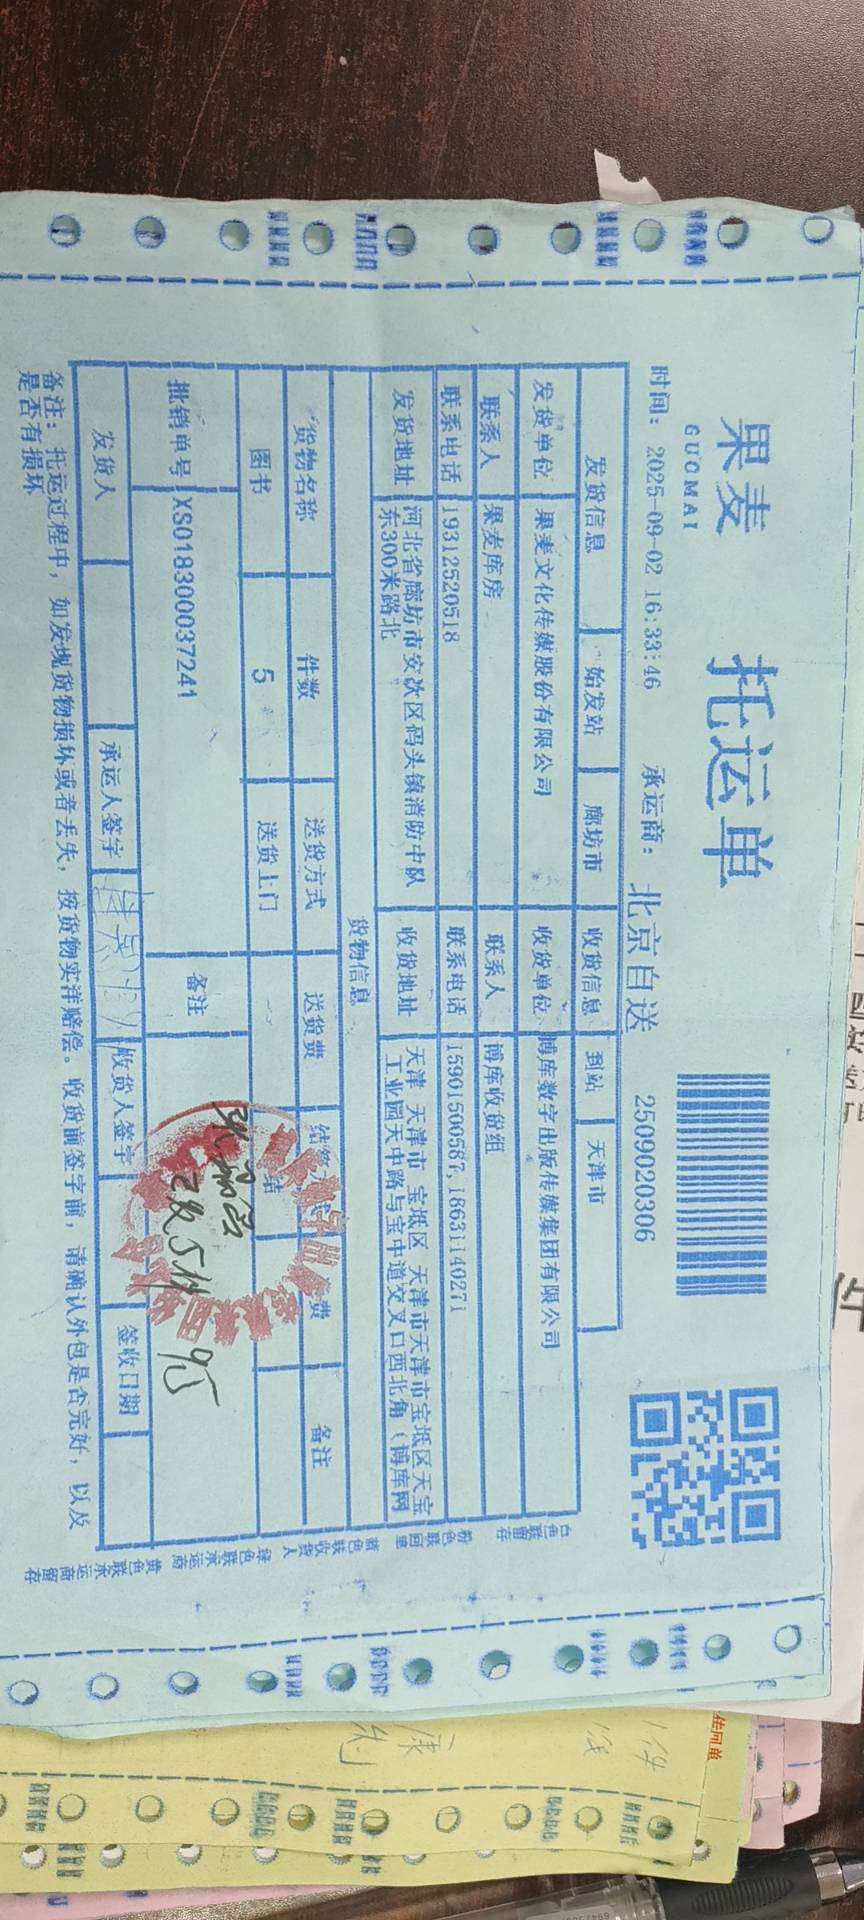 果麦
GUOMAI
托运单
时间: 2025-09-02 16:33:46 承运商: 北京自送 2509020306
发货信息 始发站 廊坊市 收货信息 到站 天津市
发货单位 果麦文化传媒股份有限公司 收货单位 博库数字出版传媒集团有限公司
联系人 果麦库房 联系人 博库收货组
联系电话 19312520518 联系电话 15901500587,18631140271
发货地址 河北省廊坊市安次区码头镇消防中队东300米路北 收货地址 天津 天津市 宝坻区 天津市天津市宝坻区天宝工业园天中路与宝中道交叉口西北角(博库网
货物信息
货物名称 件数 送货方式 送货费 备注
图书 5 送货上门
批销单号 XS018300037241 备注
收5件
发货人 承运人签字 收货人签字 签收日期
备注: 托运过程中, 如发现货物损坏或者丢失, 按货物实洋赔偿。收货前签字前, 请确认外包是否完好, 以及
是否有损坏
白色联留存 粉色联回单 蓝色联收货人 绿色联承运商 黄色联承运商留存
件